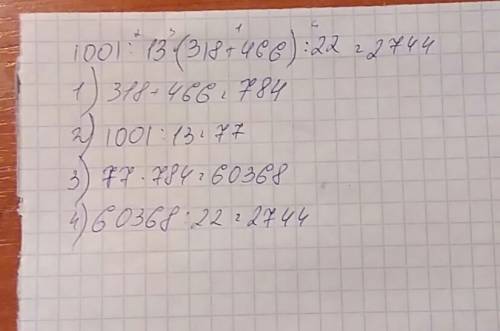 2 3 1 4
1001 : 13 · (318 + 466) : 22 = 2744
1) 318 + 466 = 784
2) 1001 : 13 = 77
3) 77 · 784 = 60368
4) 60368 : 22 = 2744